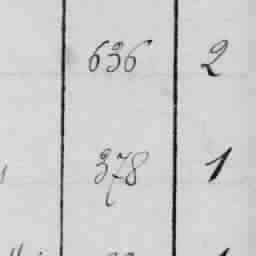 636 2
378 1